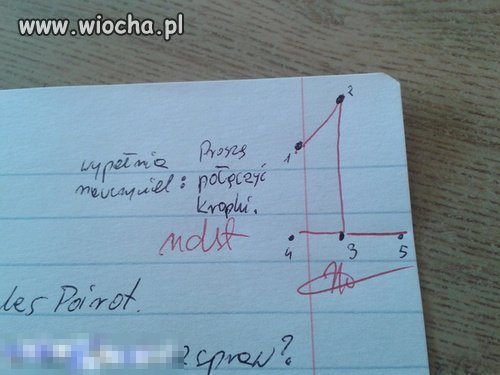 www.wiocha.pl
wypełnia
nauczyciel:
Proszę
połączyć
kropki.
ndst
1
2
4
3
5
les Poirot.
spraw?